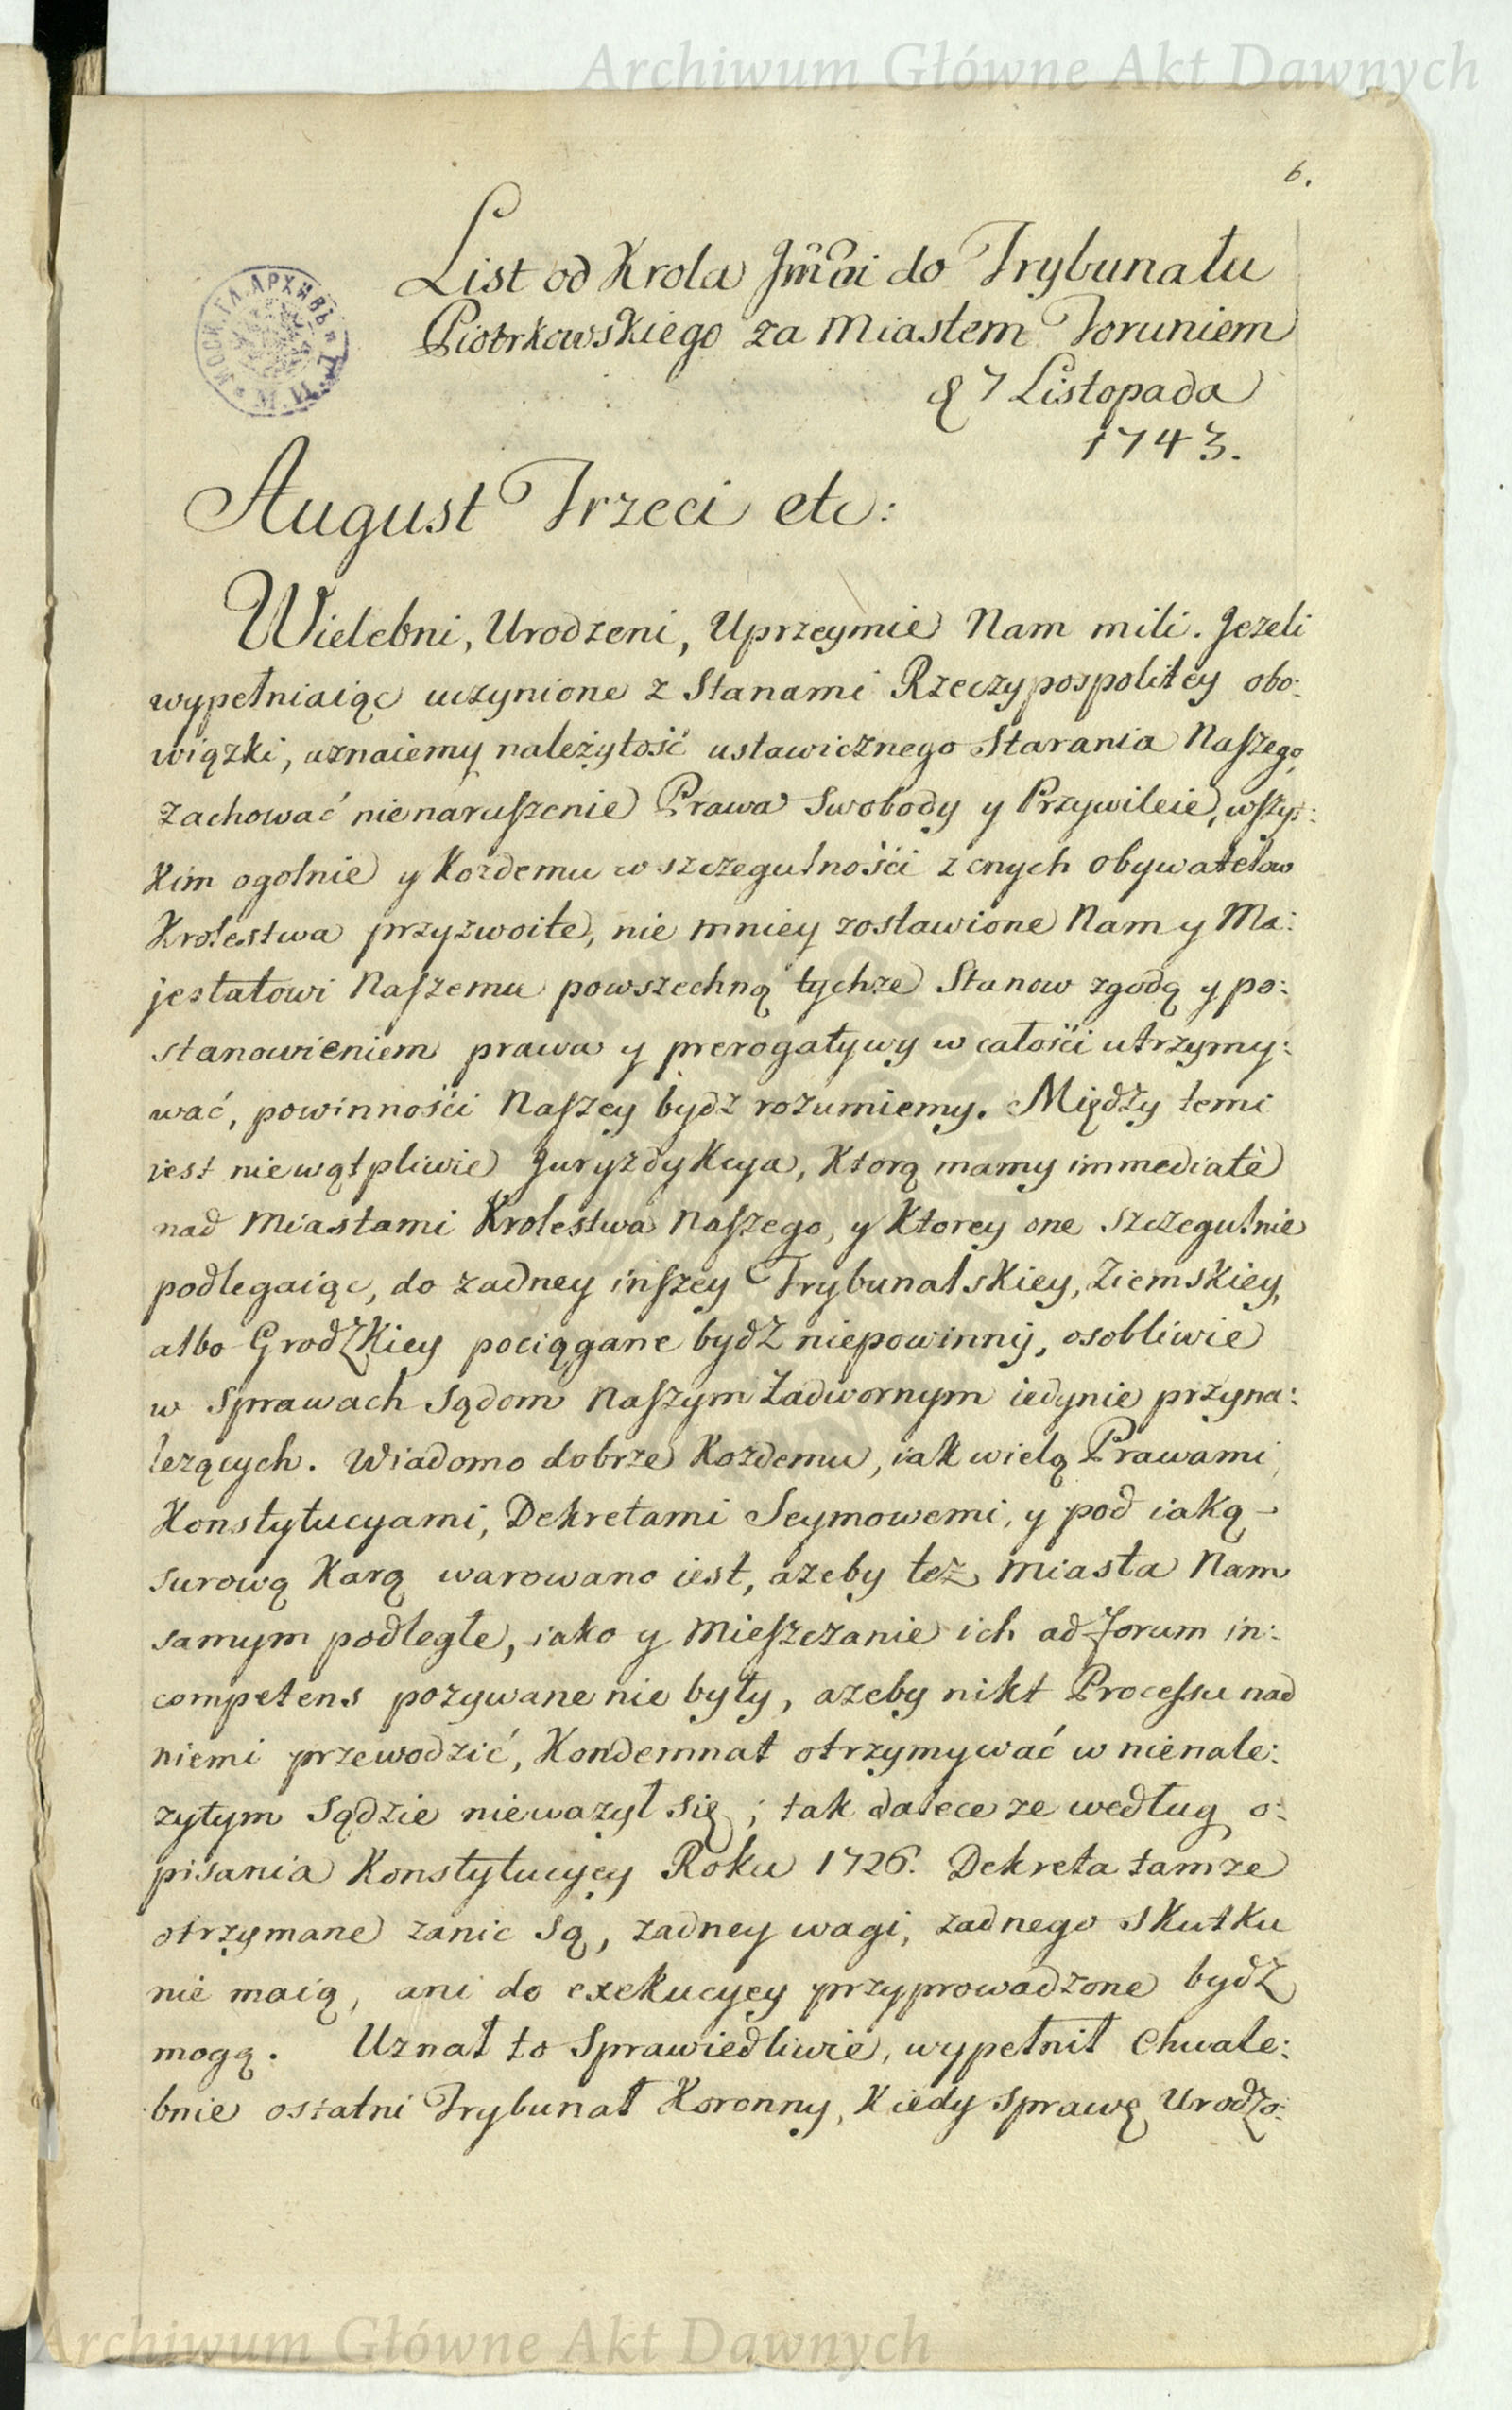 Archiwum Główne Akt Dawnych
6.
List od Krola Jmci do Trybunału
Piotrkowskiego za Miastem Toruniem
d 7 Listopada
1743.
МОСК. ГЛ. АРХИВЪ
August Trzeci etc:
Wielebni, Urodzeni, Uprzeymie Nam mili. Jezeli
wypełniaiąc uczynione z Stanami Rzeczypospolitey obo:
wiązki, uznaiemy należytość ustawicznego Starania Naszego,
zachować nienaruszenie Prawa Swobody y Przywileie, wszys:
kim ogolnie y Kozdemu w szczegulnośći z cnych obywatelow
Krolestwa przyzwoite, nie mniey zostawione Nam y Ma:
jestatowi Naszemu powszechną tychze Stanow zgodą y po:
stanowieniem prawa y prerogatywy w całośći utrzymy:
wać, powinnośći Naszey bydz rozumiemy. Między temi
jest niewątpliwie Juryzdykcya, Ktorą mamy immediatè
nad Miastami Krolestwa Naszego, y Ktorey one szczegulnie
podlegaiąc, do zadney inszey Trybunalskiey, Ziemskiey,
albo Grodzkiey pociągane bydz niepowinny, osobliwie
w sprawach Sądom Naszym Zadwornym iedynie przyna:
lezących. Wiadomo dobrze Kozdemu, iak wielą Prawami,
Konstytucyami, Dekretami Seymowemi, y pod iaką
surową Karą warowano iest, azeby też Miasta Nam
samym podległe, iako y Mieszczanie ich ad Forum in:
competens pozywane nie były, azeby nikt Processu nad
niemi przewodzić, Kondemnat otrzymywać w nienale:
zytym Sądzie niewazył się; tak dalece ze według o:
pisania Konstytucyey Roku 1726. Dekreta tamze
otrzymane zanic są, zadney wagi, zadnego skutku
nie maią, ani do exekucyey przyprowadzone bydz
mogą. Uznał to Sprawiedliwie, wypełnił Chwale:
bnie ostatni Trybunał Koronny, Kiedy Sprawę Urodzo:
Archiwum Główne Akt Dawnych